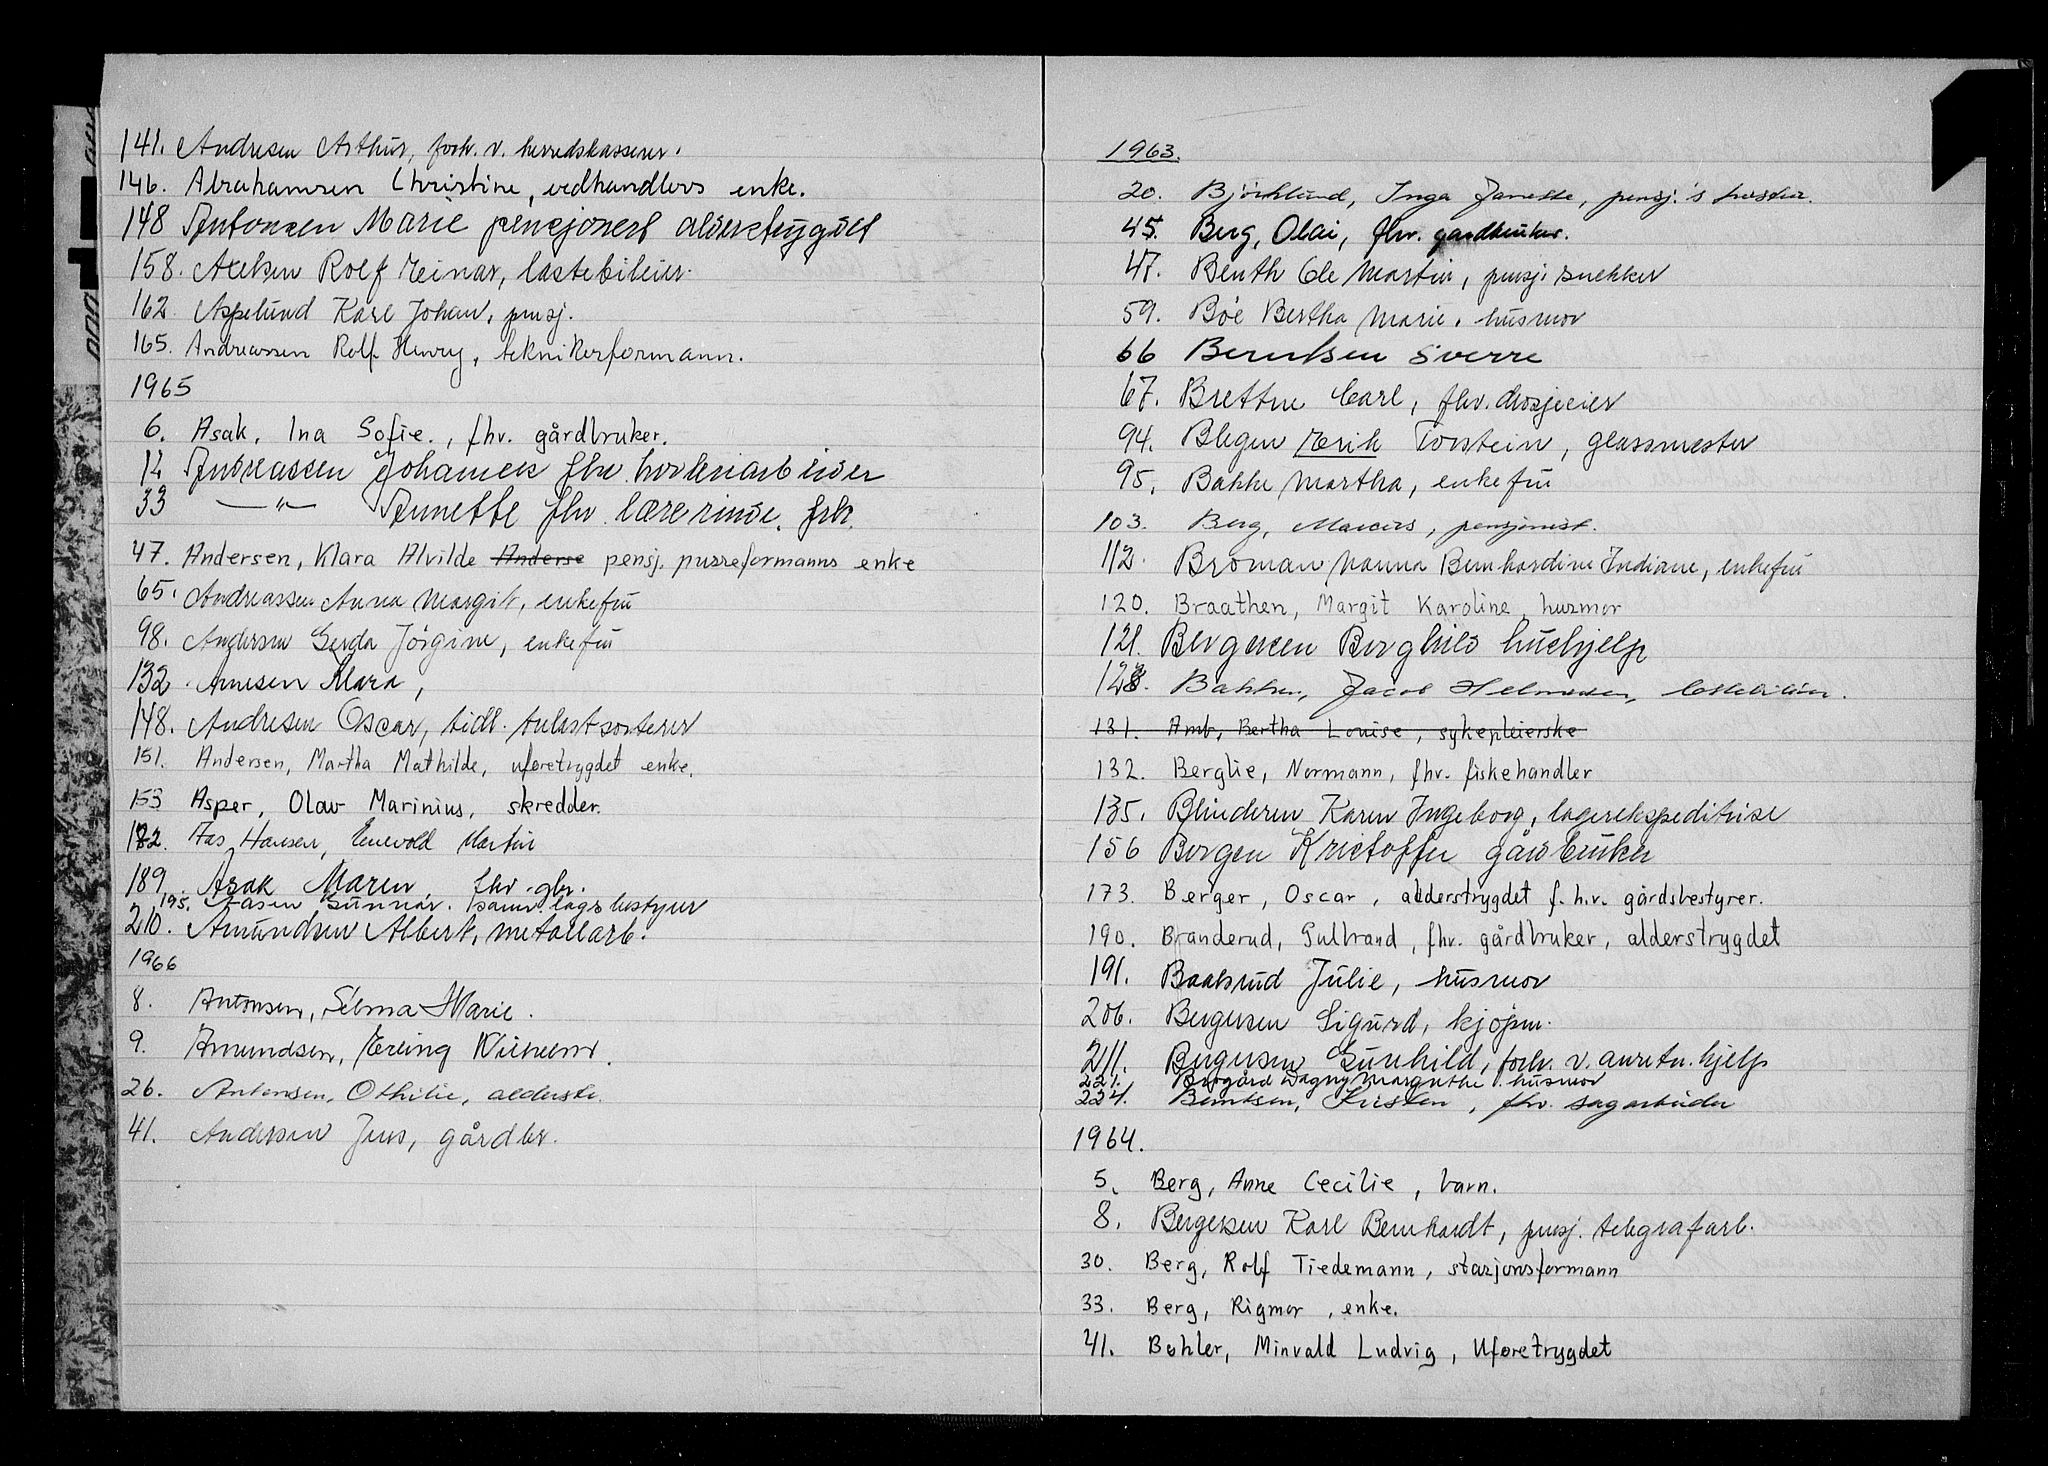 141. Andresen Arthur, forh. v. herredskasserer.
146. Abrahamsen Christine, vedhandlers enke.
148 Antonsen Marie pensjonert alderstrygdet
158. Axelsen Rolf Reinar, lastebileier.
162. Aspelund Karl Johan, pensj.
165. Andreassen Rolf Henry, teknikerformann.
1965
6. Asak, Ina Sofie., fhv. gårdbruker.
12 Andreassen Johannes fhv.
33 —"— Annette fhv. lærerinde. frk.
47. Andersen, Klara Alvilde Anderse pensj. pusseformanns enke
65. Andreassen Anna Margit, enkefru
98. Andersen Gerda Jørgine, enkefru
132. Arnesen Klara,
148. Andresen Oscar, tidl. sorterer
151. Andersen, Martha Mathilde, uføretrygdet enke.
153 Asper, Olav Marinius, skredder.
182. Aas Hansen, Enevold Martin
189. Asak Maren, fhv. gbr.
195. Aasen Gunnar. samv.lagsbestyrer
210. Amundsen Albert, metallarb.
1966
8. Antonsen, Selma Marie.
9. Amundsen, Erling Wilhelm.
26. Antonsen, Othilie, alderstr.
41. Andersen Jens, gårdbr.
1963.
20. Bjørklund, Inga Janette, pensj.'s hustru.
45. Berg, Olai, fhv. gardbruker.
47. Benth Ole Martin, pensj. snekker
59. Bøe Bertha Marie. husmor
66 Berntsen Sverre
67. Brettun Carl, fhv. drosjeeier
94. Blegen Erik Torstein, glassmester
95. Bakke Martha, enkefru
103. Berg, Marcus, pensjonist.
112. Broman Nanna Bernhardine Indiane, enkefru
120. Braathen, Margit Karoline, husmor
121. Bergersen Borghild hushjelp
128. Bakken, Jacob Helmersen, lastebileier.
131. Amb, Bertha Louise, sykepleierske
132. Berglie, Normann, fhv. fiskehandler
135. Blinderen Karen Ingeborg, lagerekspeditrise
156 Borgen Kristoffer gårdbruker
173. Berger, Oscar, alderstrygdet f.h.v. gårdsbestyrer.
190. Branderud, Gulbrand, fhv. gårdbruker, alderstrygdet
191. Baalsrud Julie, husmor
206. Bergersen Sigurd, kjøpm.
211. Bergersen Gunhild, forh. v. hjelp
221. Bregård Dagny Margrethe husmor
224. Berntsen, Kirsten, fhv. sagarbeider
1964.
5. Berg, Anne Cecilie, barn.
8. Bergersen Karl Bernhardt, pensj. telegrafarb.
30. Berg, Rolf Tiedemann, stasjonsformann
33. Berg, Rigmor, enke.
41. Bøhler, Minvald Ludvig, Uføretrygdet